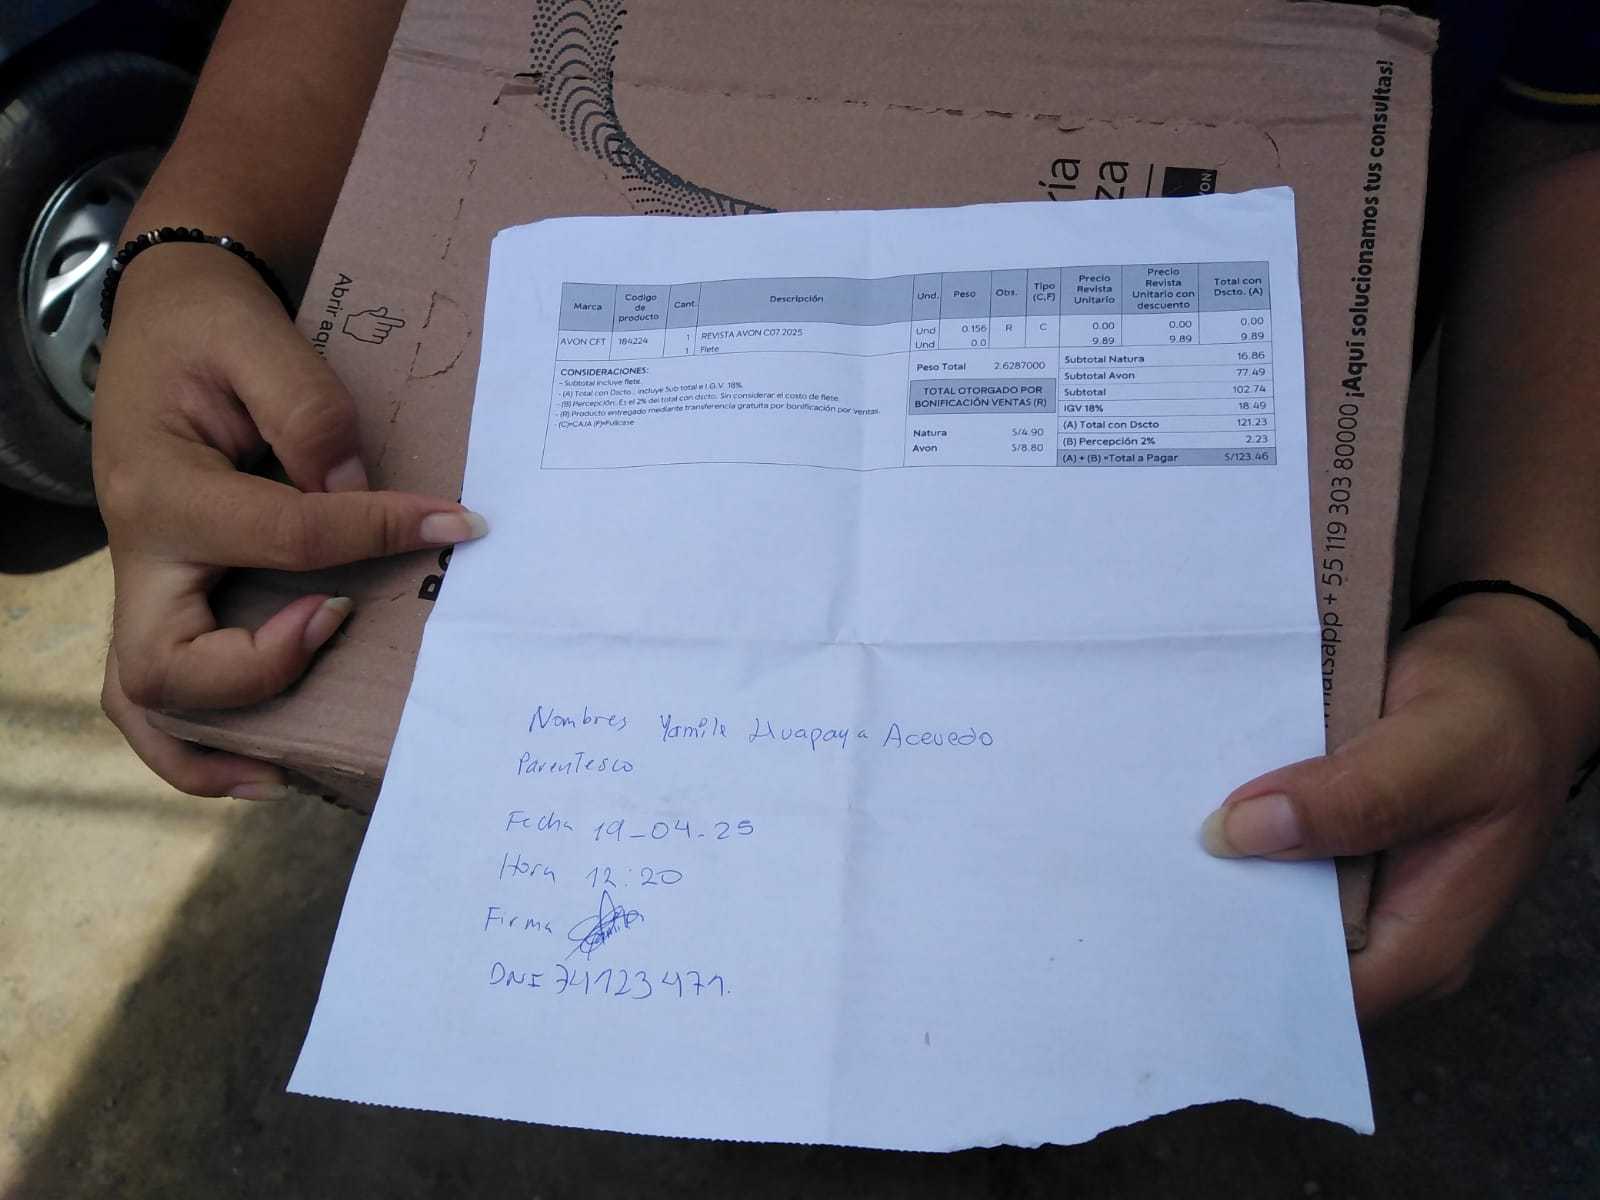 ¡Aquí solucionamos tus consultas!
Whatsapp + 55 119 303 80000
ría
za
AVON
Abrir aquí
Marca
Codigo de producto
Cant.
Descripción
Und.
Peso
Obs.
Tipo (C,F)
Precio Revista Unitario
Precio Revista Unitario con descuento
Total con Dscto. (A)
AVON CFT 184224 1 REVISTA AVON C07.2025 Und 0.156 R C 0.00 0.00 0.00
1 Flete Und 0.0 9.89 9.89 9.89
CONSIDERACIONES:
- Subtotal incluye flete.
- (A) Total con Dscto.: incluye Sub total e I.G.V. 18%.
- (B) Percepción: Es el 2% del total con dscto. Sin considerar el costo de flete.
- (R) Producto entregado mediante transferencia gratuita por bonificación por ventas.
- (C)=CAJA (F)=Fullcase
Peso Total 2.6287000
TOTAL OTORGADO POR
BONIFICACIÓN VENTAS (R)
Natura S/4.90
Avon S/8.80
Subtotal Natura 16.86
Subtotal Avon 77.49
Subtotal 102.74
IGV 18% 18.49
(A) Total con Dscto 121.23
(B) Percepción 2% 2.23
(A) + (B) =Total a Pagar S/123.46
Nombres Yamile Huapaya Acevedo
Parentesco
Fecha 19-04-25
Hora 12:20
Firma
DNI 74123471.